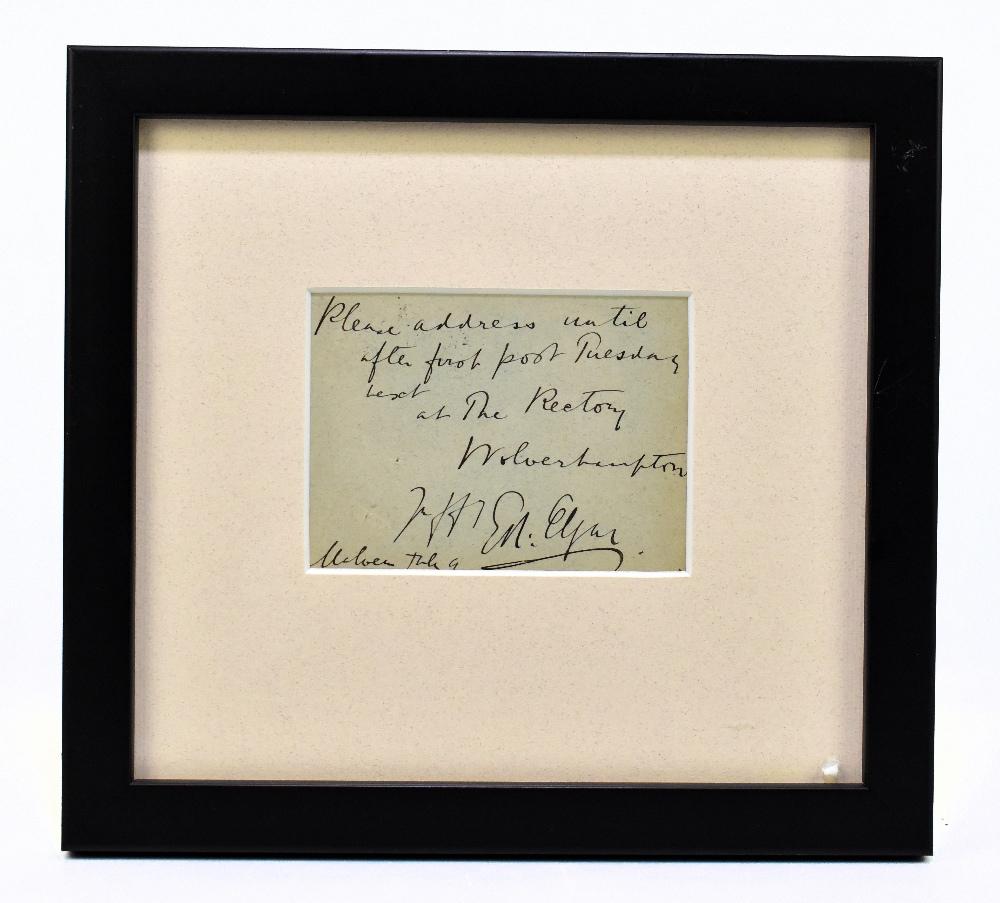 Please address until
after first post Tuesday
next
at The Rectory
Wolverhampton
Ed. Elgar
Malvern Feb 9